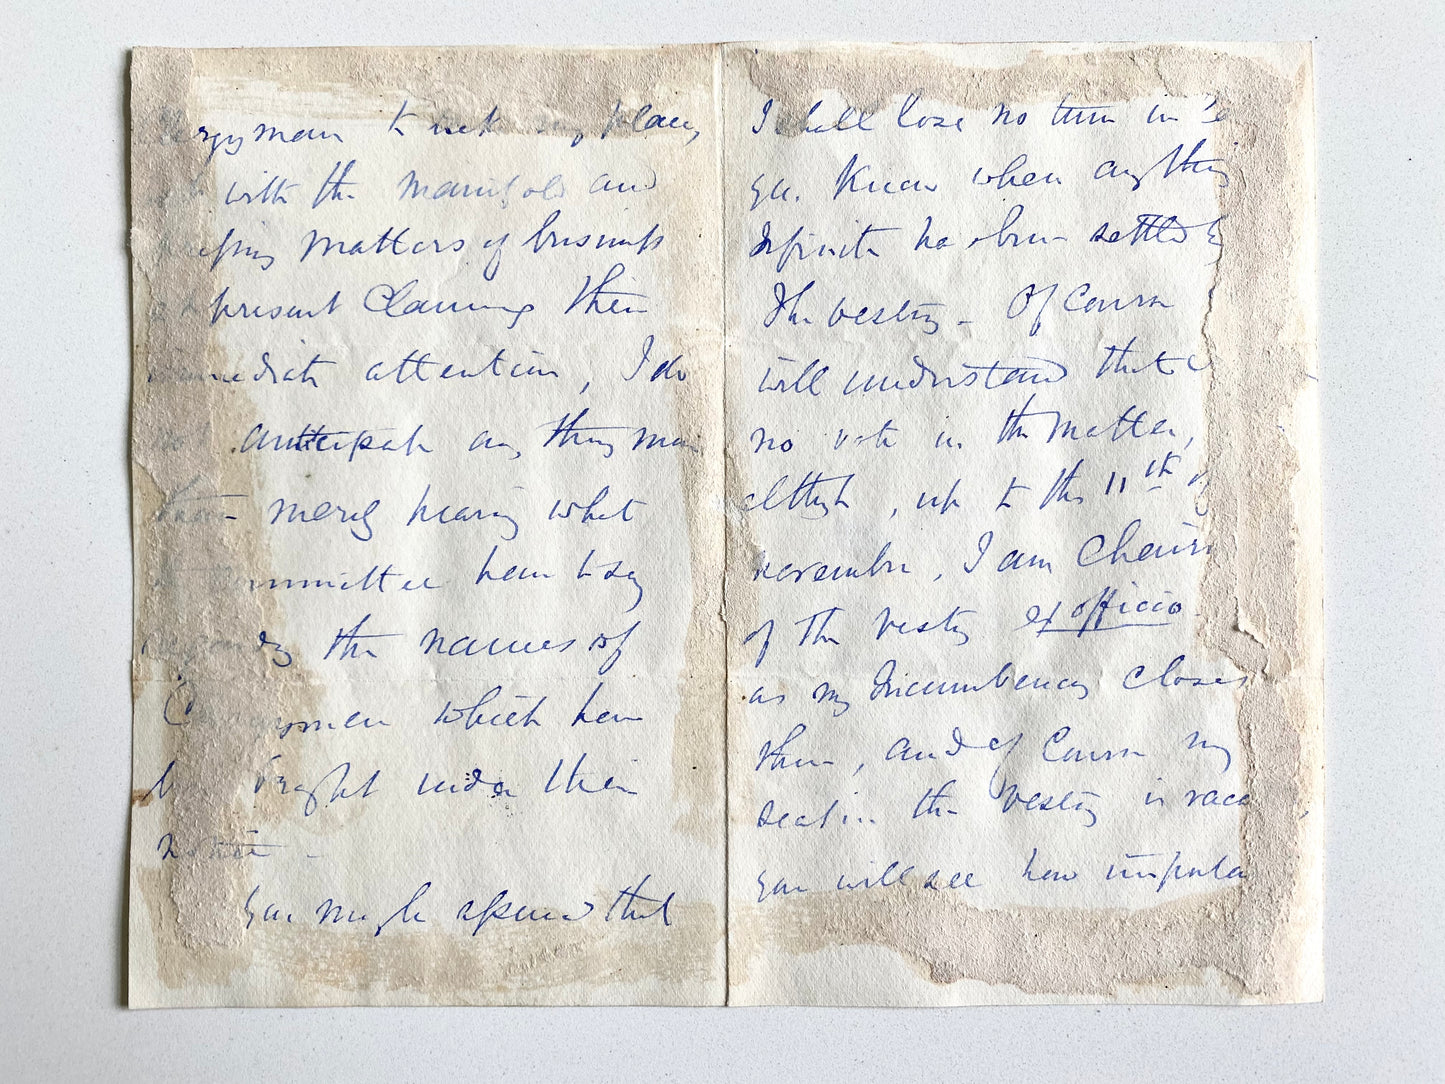 to take my place,
with the manifold and
matters of business
present claiming their
attention, I do
anticipate any thing more
than merely hearing what
committee have to say
the names of
which have
under their
notice -
You may be assured that
I shall lose no time in
you know when anything
definite has been settled by
the vestry - Of course
will understand that I
no vote in the matter,
although, up to the 11th of
November, I am Chair
of the vestry ex officio
as my Incumbency closes
then, and of course my
seat in the vestry is vaca
you will see how importa